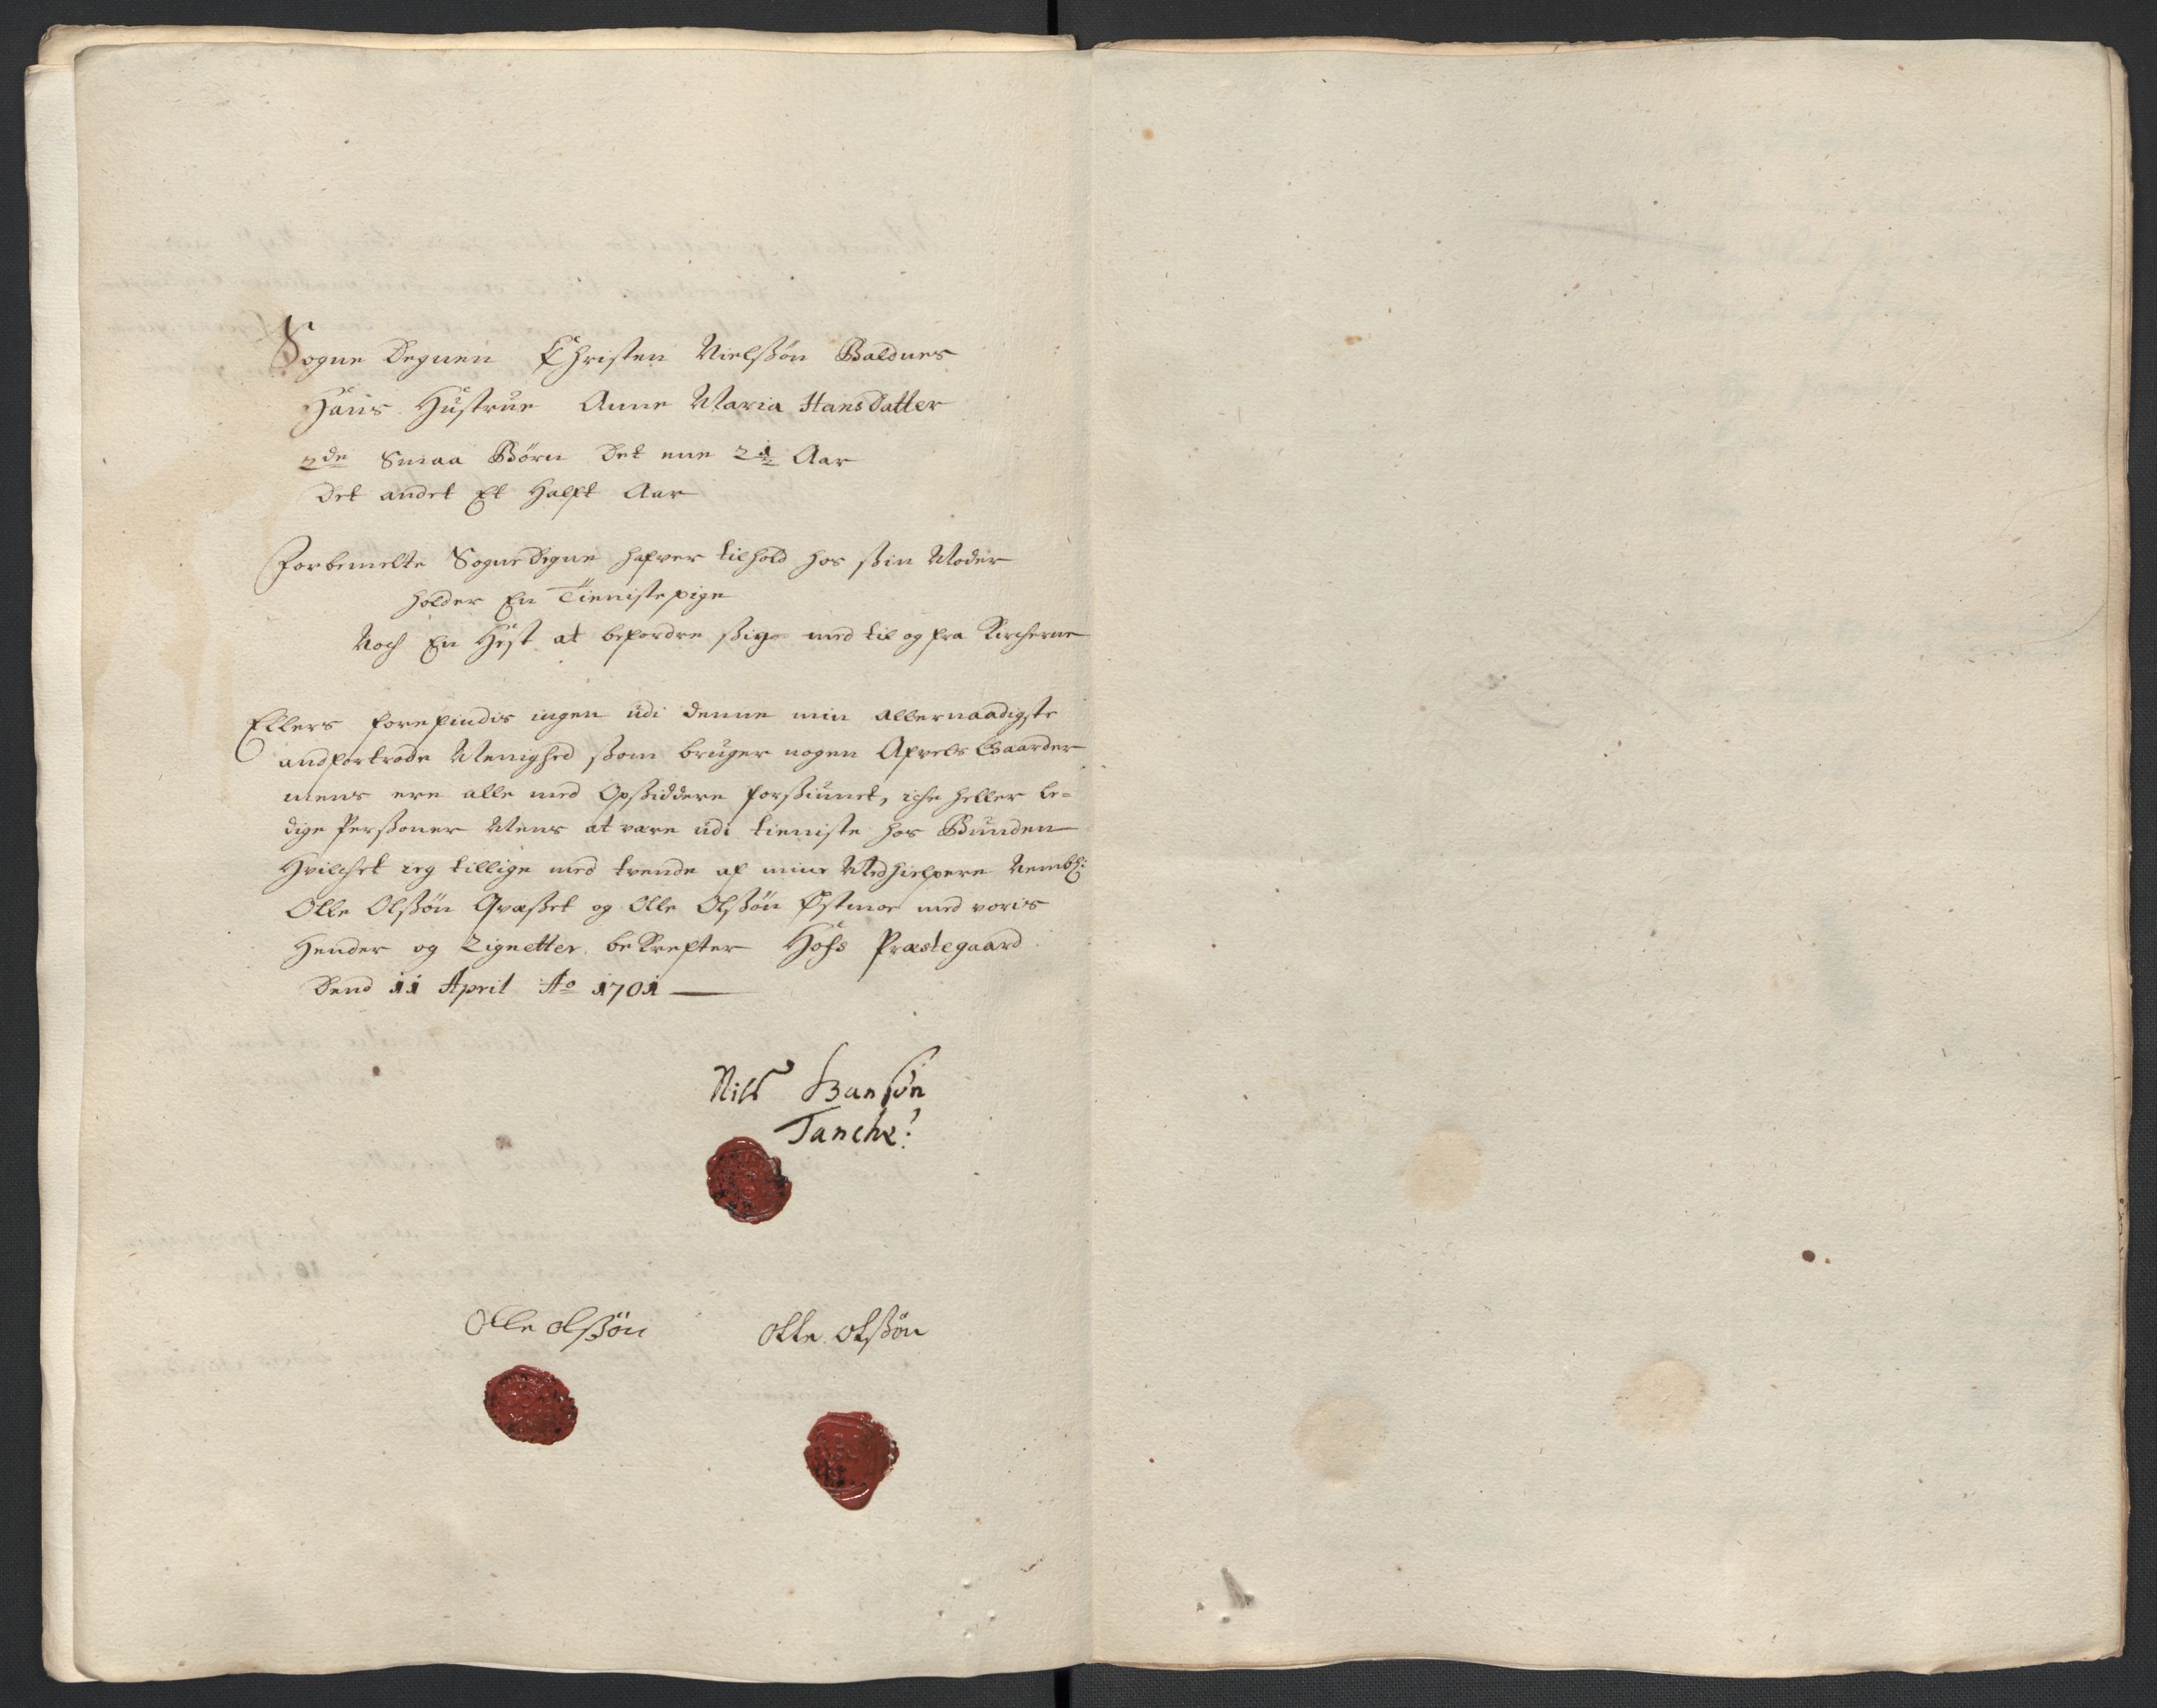 Sogne Degnen Christen Nielssøn Baldnes
Hans Hustrue Anne Maria HansDatter
2de Smaa Børn Det ene 2½ Aar
Det andet Et Halft Aar
Forbemelte SogneDegne hafver tilhold hos sin Moder
holder En Tieniste pige
Noch En Hest at befordre sig med til og fra Kircherne
Ellers forefindis ingen udi denne min allernaadigste
andfortrode Menighed som bruger nogen Afvels Gaarder
mens ere alle med Opsiddere forsiunet, iche heller le-
dige Personer Mens at være udi tieniste hos Bunden
Hvilchet ieg tillige med tvende af mine Medhielpere Nembl:
Olle Olssøn Qvasset og Olle Olssøn Østmoe med voris
Hender og Zignetter bekrefter Hofs Præstegaard
Dend 11 April Ao 1701
Nils Hansøn
Tanche
Olle olssøn
Olle olssøn